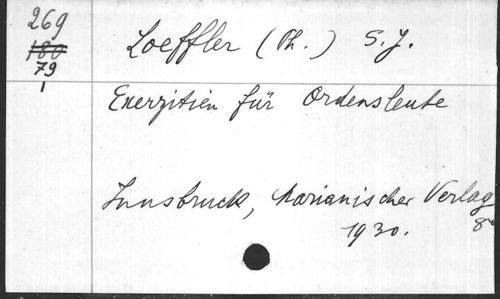 269
180
79
1
Loeffler (Ph.) S.J.
Exerzitien für Ordensleute
Innsbruck, Marianischer Verlag
1930. 8°